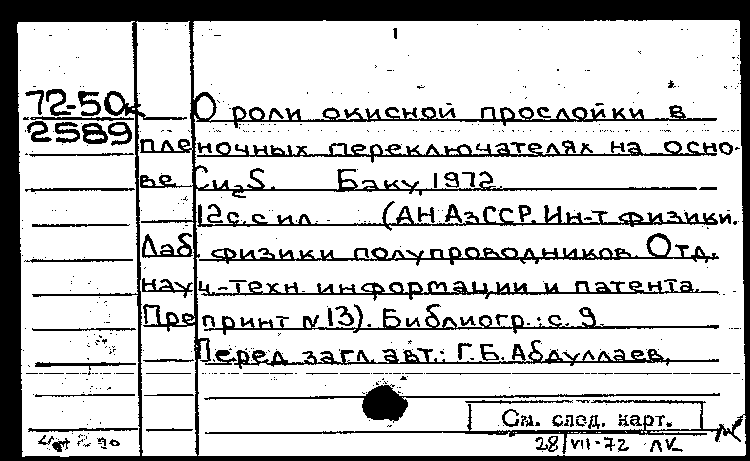 72-50к
2589
О роли окисной прослойки в
пленочных переключателях на осно-
ве Cu₂S. Баку, 1972.
12с. с ил. (АН АзССР. Ин-т физики.
Лаб. физики полупроводников. Отд.
науч.-техн. информации и патента.
Препринт №13). Библиогр.: с. 9.
Перед загл. авт.: Г.Б. Абдуллаев,
См. след. карт.
28/VII-72